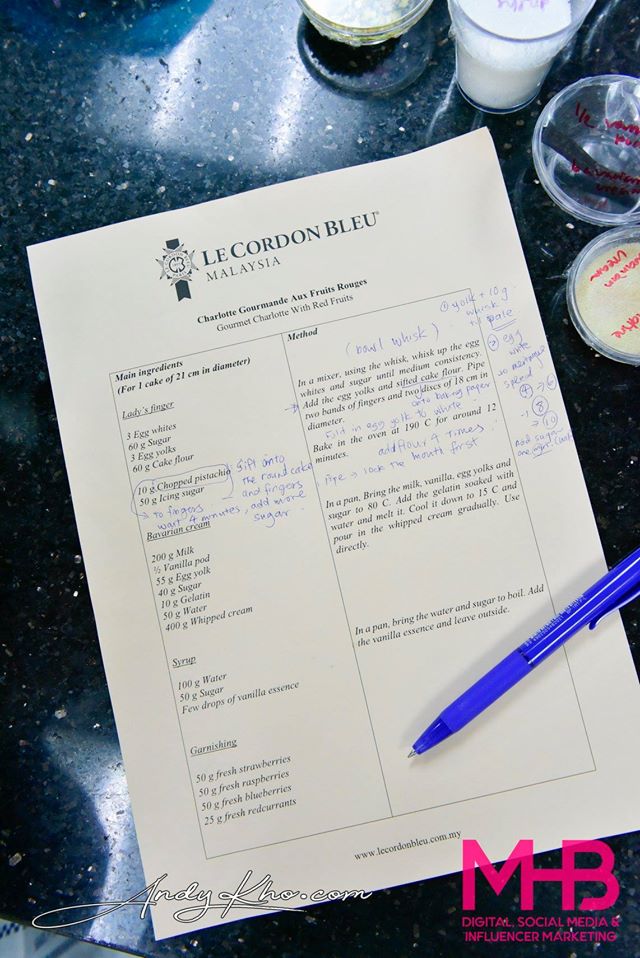 syrup
LE CORDON BLEU®
MALAYSIA
Charlotte Gourmande Aux Fruits Rouges
Gourmet Charlotte With Red Fruits
Main ingredients
(For 1 cake of 21 cm in diameter)
Lady's finger
3 Egg whites
60 g Sugar
3 Egg yolks
60 g Cake flour
10 g Chopped pistachio
50 g Icing sugar
sift onto
the round cake
and fingers
→ to fingers
wait 4 minutes, add more
sugar
Bavarian cream
200 g Milk
½ Vanilla pod
55 g Egg yolk
40 g Sugar
10 g Gelatin
50 g Water
400 g Whipped cream
Syrup
100 g Water
50 g Sugar
Few drops of vanilla essence
Garnishing
50 g fresh strawberries
50 g fresh raspberries
50 g fresh blueberries
25 g fresh redcurrants
Method
(bowl whisk)
① yolk + 10 g
whisk
till pale
In a mixer, using the whisk, whisk up the egg
whites and sugar until medium consistency.
Add the egg yolks and sifted cake flour. Pipe
two bands of fingers and two discs of 18 cm in
diameter.
onto baking paper
egg yolk
white
Bake in the oven at 190 C for around 12
minutes.
add flour 4 times
pipe → lock the mouth first
② egg
white
speed
④ → ⑥
→ ⑧
→ ⑩
add sugar
In a pan. Bring the milk, vanilla, egg yolks and
sugar to 80 C. Add the gelatin soaked with
water and melt it. Cool it down to 15 C and
pour in the whipped cream gradually. Use
directly.
In a pan, bring the water and sugar to boil. Add
the vanilla essence and leave outside.
www.lecordonbleu.com.my
AndyKho.com
MHB
DIGITAL, SOCIAL MEDIA &
INFLUENCER MARKETING